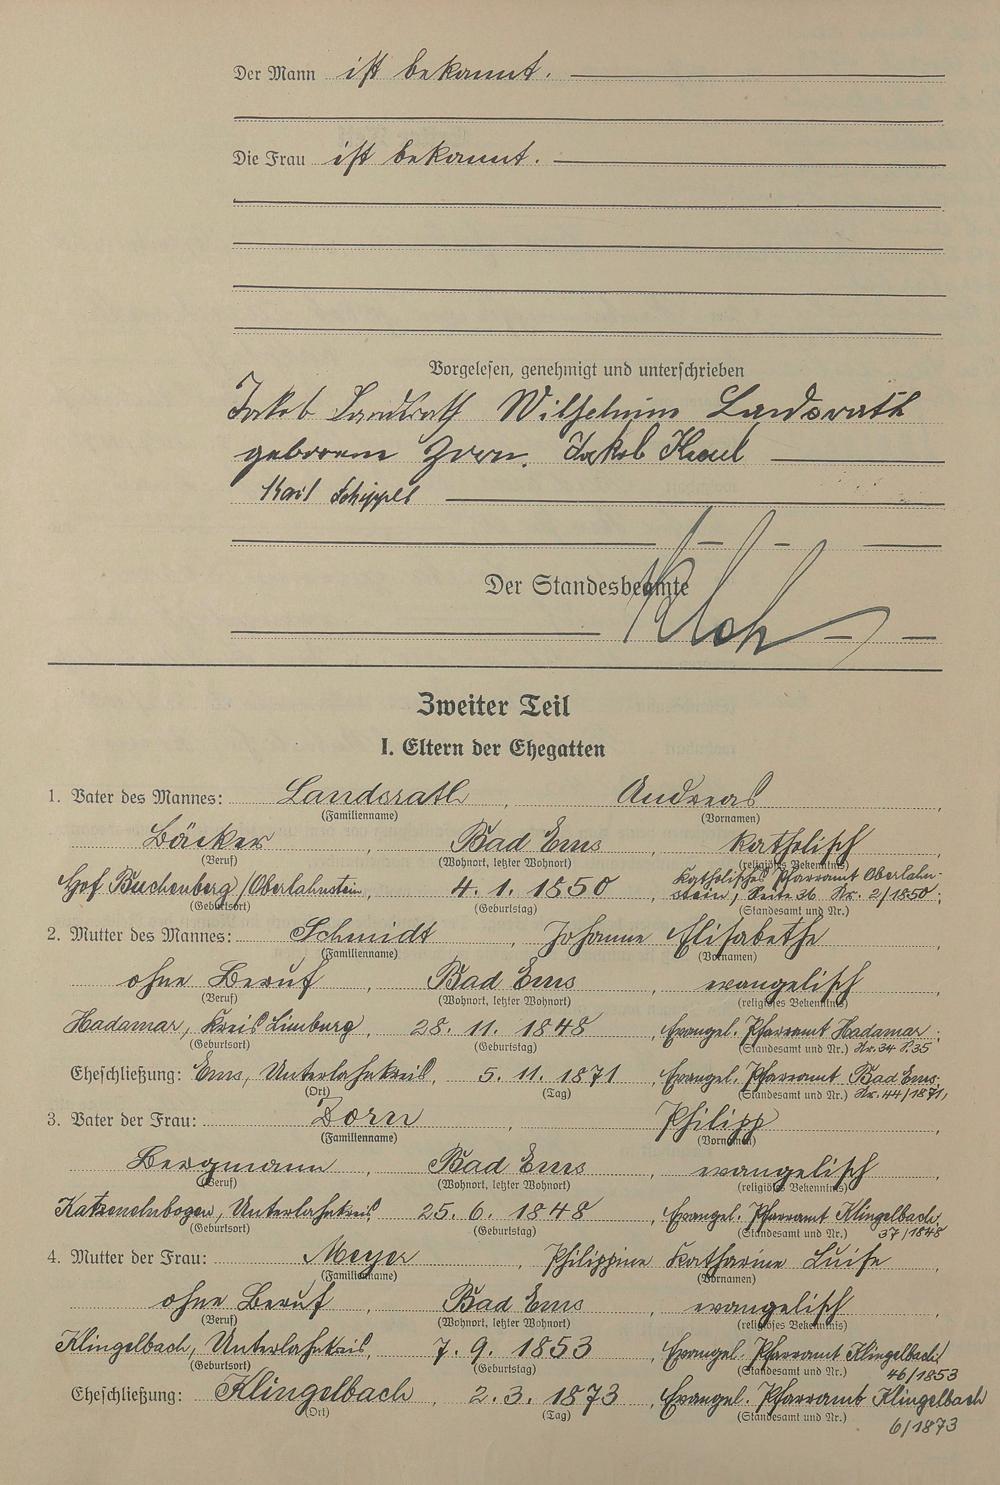 Der Mann ist bekannt.
Die Frau ist bekannt.
Vorgelesen, genehmigt und unterschrieben
Jakob Landsrath Wilhelmine Landsrath
geborene Zorn. Jakob
Karl
Der Standesbeamte
Zweiter Teil
I. Eltern der Ehegatten
1. Vater des Mannes: Landsrath, Andreas,
(Familienname) (Vornamen)
Bäcker, Bad Ems, katholisch
(Beruf) (Wohnort, letzter Wohnort) (religiöses Bekenntnis)
Hof Buchenberg/Oberlahnstein, 4. 1. 1850, Katholisches Pfarramt Oberlahn-
stein, Seite 36 Nr. 2/1850;
(Geburtsort) (Geburtstag) (Standesamt und Nr.)
2. Mutter des Mannes: Schmidt, Johanne Elisabethe,
(Familienname) (Vornamen)
ohne Beruf, Bad Ems, evangelisch,
(Beruf) (Wohnort, letzter Wohnort) (religiöses Bekenntnis)
Hadamar, Kreis Limburg, 28. 11. 1848, Evangel. Pfarramt Hadamar;
(Geburtsort) (Geburtstag) (Standesamt und Nr.) Nr. 34 S. 35
Eheschließung: Ems, Unterlahnkreis, 5. 11. 1871, Evangel. Pfarramt Bad Ems;
(Ort) (Tag) (Standesamt und Nr.) Nr. 44/1871,
3. Vater der Frau: Zorn, Philipp,
(Familienname) (Vornamen)
Bergmann, Bad Ems, evangelisch,
(Beruf) (Wohnort, letzter Wohnort) (religiöses Bekenntnis)
Katzenelnbogen, Unterlahnkreis, 25. 6. 1848, Evangel. Pfarramt Klingelbach,
(Geburtsort) (Geburtstag) (Standesamt und Nr.) 37/1848
4. Mutter der Frau: Meyer, Philippine Katharine Luise,
(Familienname) (Vornamen)
ohne Beruf, Bad Ems, evangelisch,
(Beruf) (Wohnort, letzter Wohnort) (religiöses Bekenntnis)
Klingelbach, Unterlahnkreis, 7. 9. 1853, Evangel. Pfarramt Klingelbach
(Geburtsort) (Geburtstag) (Standesamt und Nr.) 46/1853
Eheschließung: Klingelbach, 2. 3. 1873, Evangel. Pfarramt Klingelbach
(Ort) (Tag) (Standesamt und Nr.) 6/1873